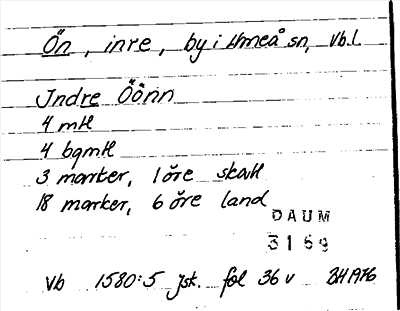 Ön, inre, by i Umeå sn, Vb.l.
Jndre Öönn
4 mtl
4 bgmtl
3 marker, 1 öre skatt
18 marker, 6 öre land
DAUM
3169
Vb 1580:5 Jsk. fol 36 v BH 1976